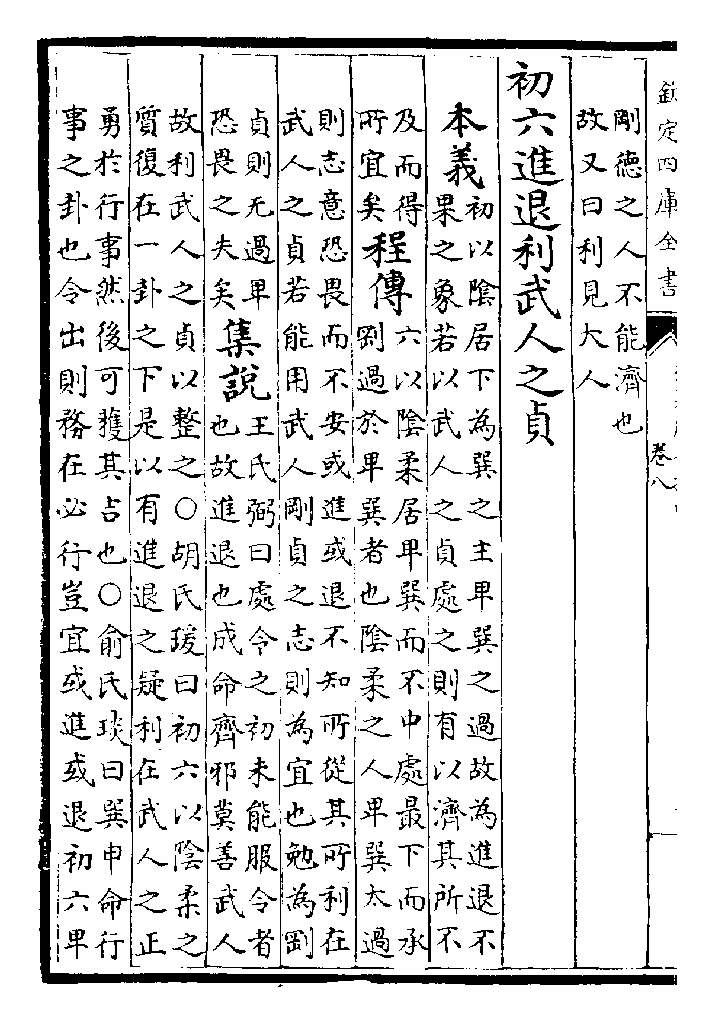 欽定四庫全書
卷八
剛德之人不能濟也
故又曰利見大人
初六進退利武人之貞
本義
初以隂居下為巽之主卑巽之過故為進退不
果之象若以武人之貞處之則有以濟其所不
及而得
所宜矣
程傳
六以隂柔居卑巽而不中處最下而承
剛過於卑巽者也隂柔之人卑巽太過
則志意恐畏而不安或進或退不知所從其所利在
武人之貞若能用武人剛貞之志則為宜也勉為剛
貞則无過卑
恐畏之失矣
集說
王氏弼曰處令之初未能服令者
也故進退也成命齊邪莫善武人
故利武人之貞以整之○胡氏瑗曰初六以陰柔之
質復在一卦之下是以有進退之疑利在武人之正
勇於行事然後可獲其占也○俞氏琰曰巽申命行
事之卦也令出則務在必行豈宜或進或退初六卑